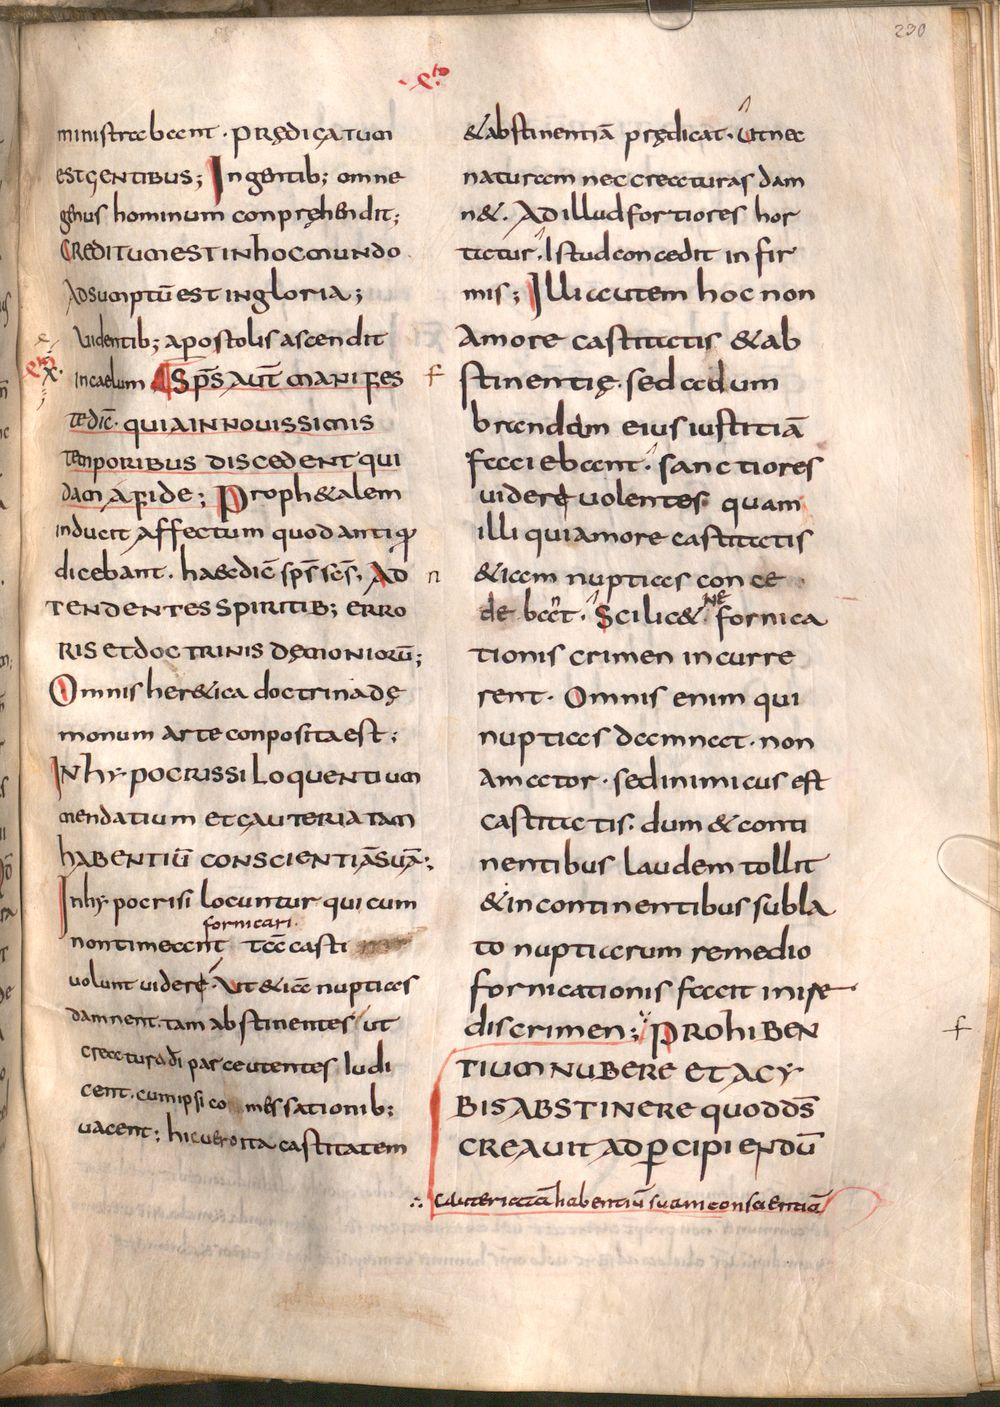 230
ministrabant · PRĘDICATUM
EST GENTIBUS; In gentib; omne
genus hominum conpręhendit;
CREDITUM EST IN HOC MUNDO
ADSUMPTŪ EST IN GLORIA;
Videntib; apostolis ascendit
x. in caelum SP̄S AUT̄ MANIFES
TE DIC̄ · QUIA IN NOUISSIMIS
TEMPORIBUS DISCEDENT QUI
DAM A FIDE; Proph&alem
inducit affectum quod antiq
dicebant · haec dic̄ sp̄s sc̄s · AD
TENDENTES SPIRITIB; ERRO
RIS ET DOCTRINIS DĘMONIORŪ;
Omnis her&ica doctrina dę
monum arte conposita est;
IN HYPOCRISSI LOQUENTIUM
MENDATIUM ET CAUTERIATAM
HABENTIŪ CONSCIENTIĀ SUĀ;
In hypocrisi locuntur qui cum
fornicari
non timeant casti
uolunt uidere · Ut & nuptias
damnent · tam abstinentes ut
creatura di parce utentes ludi
cent · cum ipsi comessationib;
uacent; hic uero ita castitatem
&abstinentiā prędicat · Ut nec
naturam nec creaturas dam
n& · Ad illud fortiores hor
tatur · Istud concedit infir
mis; Illi autem hoc non
f amore castitatis & ab
stinentię · sed ad um
brandam eius iustitiā
faciebant · sanctiores
uidere uolentes quam
illi qui amore castitatis
n &iam nuptias conce
debant · Scilic& NE fornica
tionis crimen incurre
rent · Omnis enim qui
nuptias damnat · non
amator · sed inimicus est
castitatis · dum & conti
nentibus laudem tollit
& incontinentibus subla
to nuptiarum remedio
fornicationis facit inise
discrimen; PROHIBEN f
TIUM NUBERE ET A CY
BIS ABSTINERE QUOD D̄S
CREAUIT AD PERCIPIENDŪ
∴ cauteriatā habentiū suam conscientiā